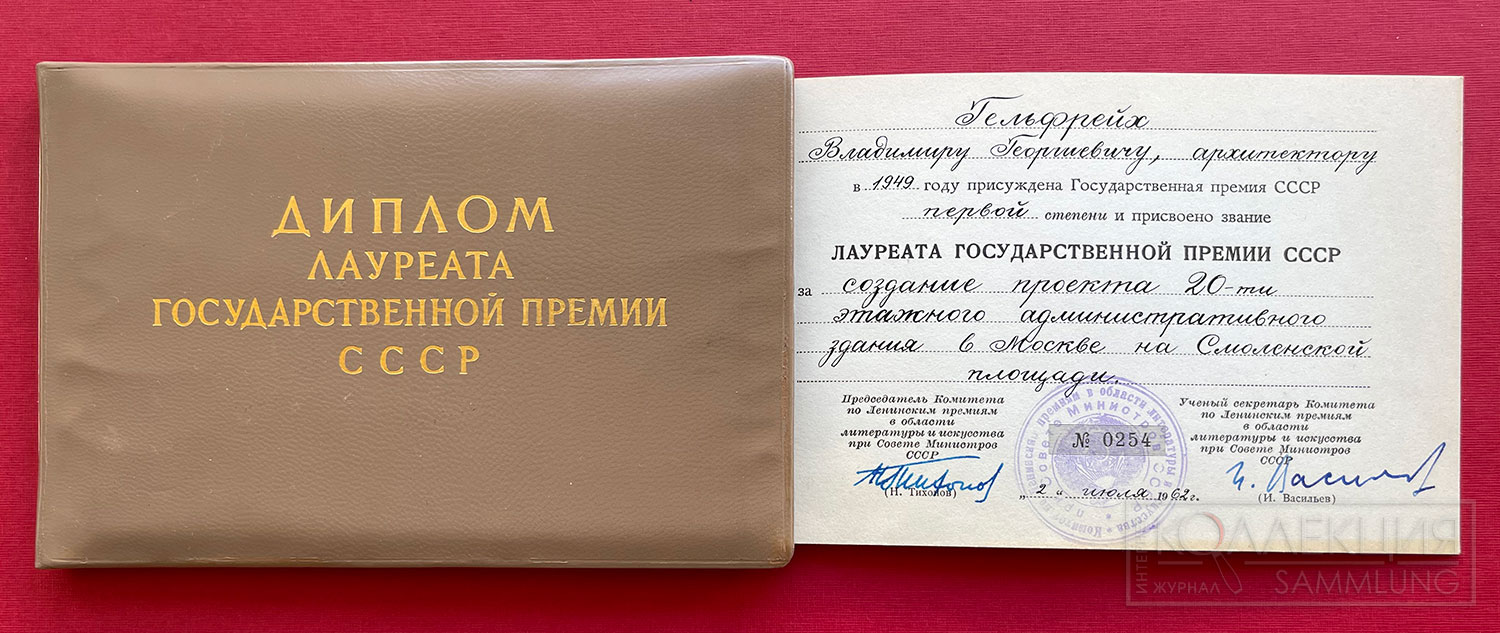 ДИПЛОМ
ЛАУРЕАТА
ГОСУДАРСТВЕННОЙ ПРЕМИИ
СССР
Гельфрейх
Владимиру Георгиевичу, архитектору
в 1949 году присуждена Государственная премия СССР
первой степени и присвоено звание
ЛАУРЕАТА ГОСУДАРСТВЕННОЙ ПРЕМИИ СССР
за создание проекта 20-ти
этажного административного
здания в Москве на Смоленской
площади.
Председатель Комитета
по Ленинским премиям
в области
литературы и искусства
при Совете Министров
СССР
(Н. Тихонов)
№ 0254
„ 2 " июля 1962 г.
Ученый секретарь Комитета
по Ленинским премиям
в области
литературы и искусства
при Совете Министров
СССР
(И. Васильев)
КОЛЛЕКЦИЯ
ЖУРНАЛ
SAMMLUNG